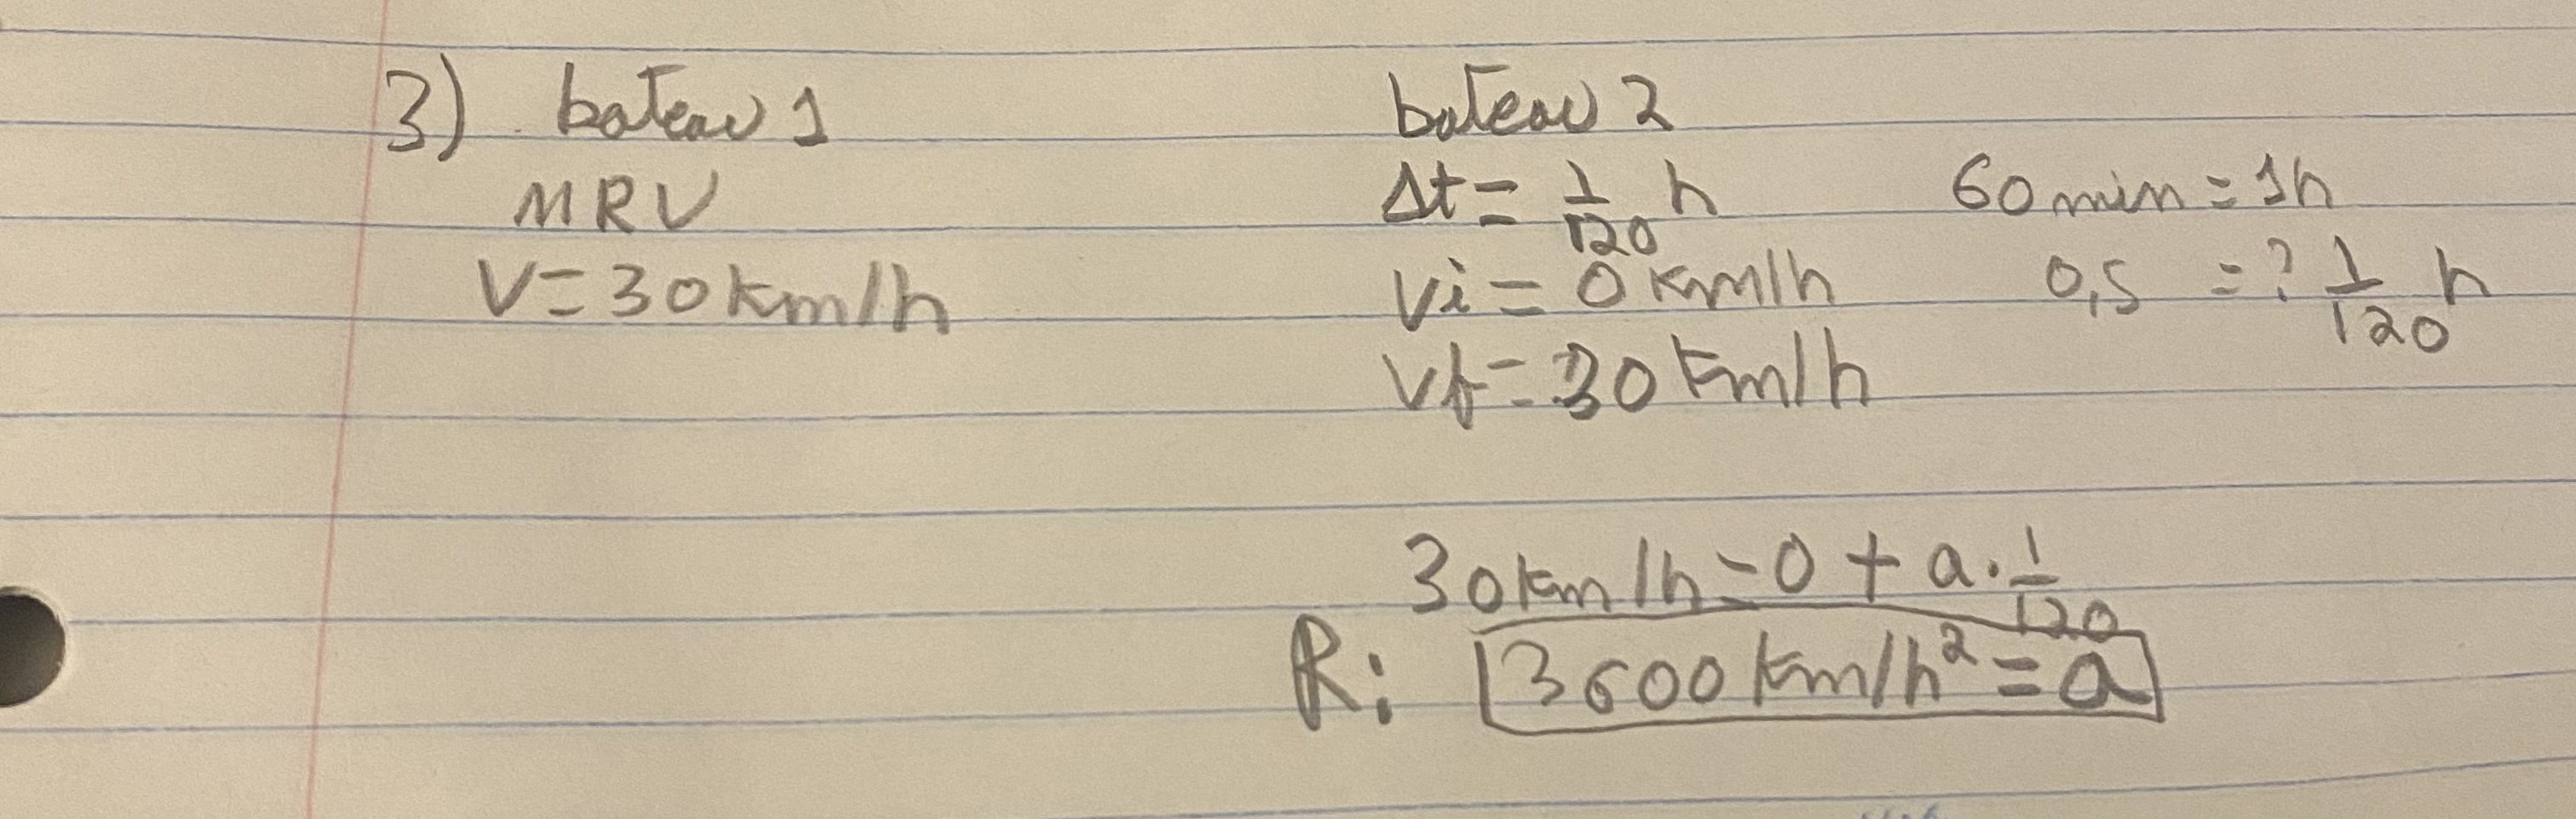 3) bateau 1
MRU
V = 30 km/h
bateau 2
Δt = 1/120 h
Vi = 0 km/h
Vf = 30 km/h
60 min = 1h
0,5 = ? 1/120 h
30 km/h = 0 + a · 1/120
R: 3600 km/h² = a